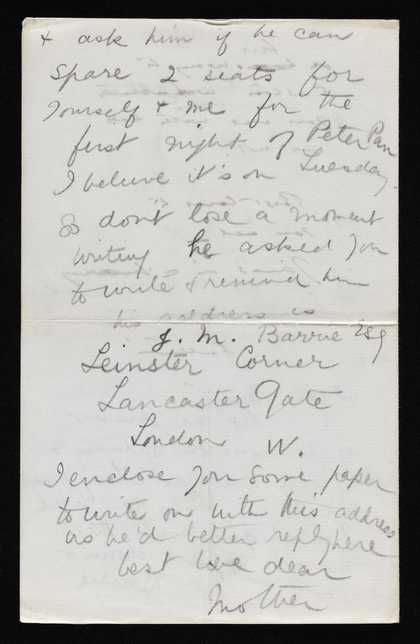 & ask him if he can
Spare 2 seats for
Yourself & me for the
first night of Peter Pan
I believe it's on Tuesday.
So don't lose a moment
writing he asked you
to write & remind him
his address is
J. M. Barrie Esq
Leinster Corner
Lancaster Gate
London W.
I enclose you some paper
to write on with this address
as he'd better reply here
best love dear
Mother